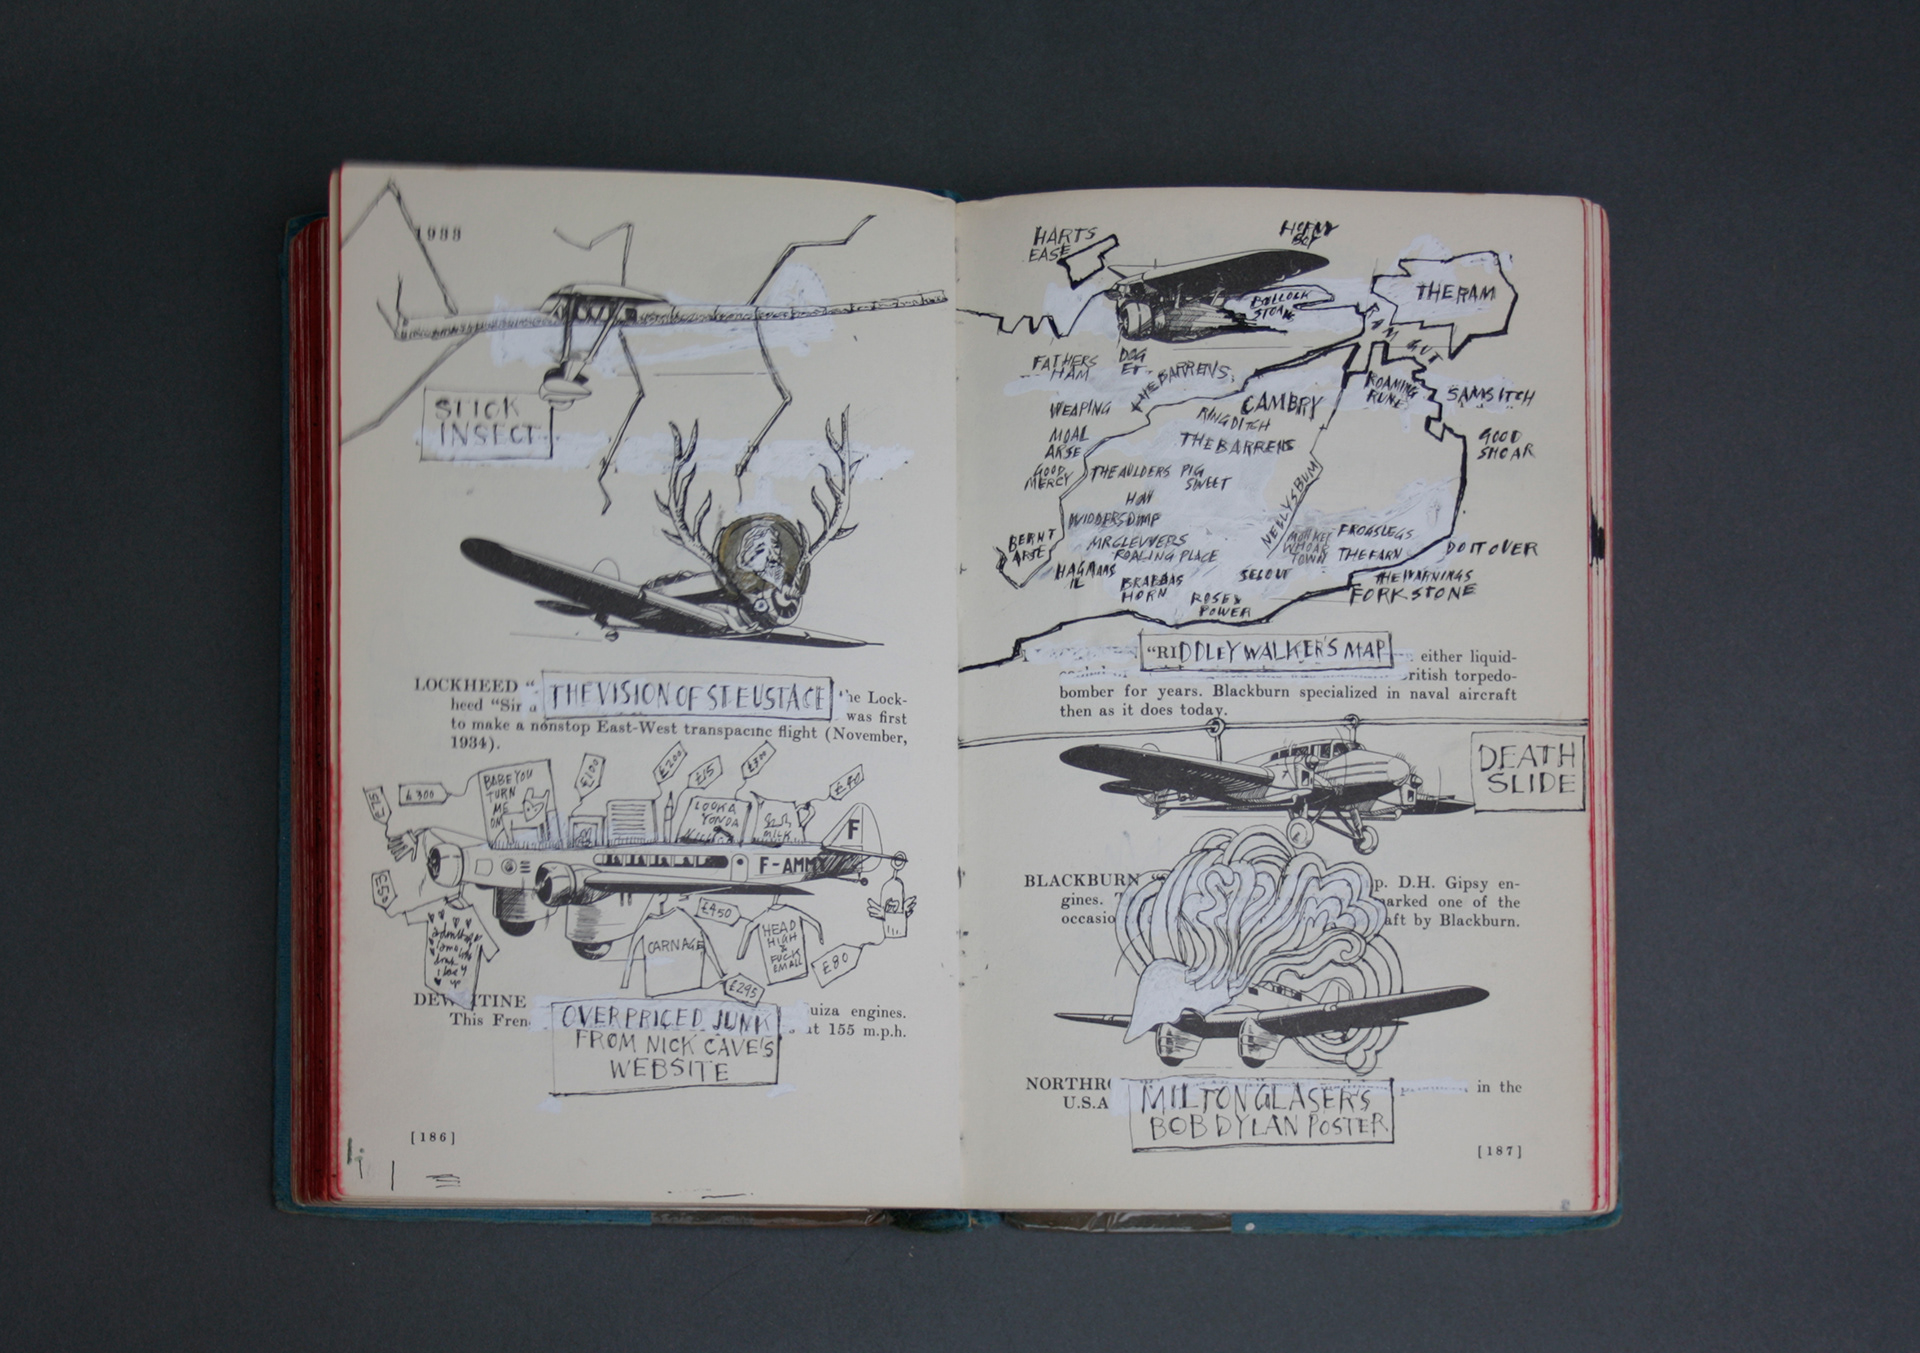 1933
STICK
INSECT
LOCKHEED "THE VISION OF ST EUSTACE he Lock-
heed "Sir was first
to make a nonstop East-West transpacific flight (November,
1934).
£75
£300
BABE YOU
TURN
ME
ON
£100
£200
£15
LOOKA
YONDA
MILK
F
F-AMMY
£50
£450
CARNAGE
HEAD
HIGH
&
FUCK
SMALL
£295
£80
DEW ITINE
This Fren uiza engines.
at 155 m.p.h.
OVERPRICED JUNK
FROM NICK CAVE'S
WEBSITE
[186]
HARTS
EASE
HORNY
BOY
THE RAM
BULLOCK
FATHERS
HAM
DOG
ET
THE BARRENS
ROAMING
RUNE
SAMSITCH
WEAPING
CAMBRY
RINGDITCH
MOAL
ARSE
THE BARRENS
GOOD
SHOAR
GOOD
MERCY
THE AULDERS
PIG
SWEET
HOW
WIDDERSDUMP
NELLYSBUM
BERNT
ARSE
MR CLEVVERS
ROALING PLACE
MONKEY
WHOAR
TOWN
FROGSLEGS
THE FARN
DO IT OVER
HAGMANS
IL
BRABBAS
HORN
SELOUT
THE WARNINGS
FORKSTONE
ROSES
POWER
"RIDDLEY WALKER'S MAP either liquid-
British torpedo-
bomber for years. Blackburn specialized in naval aircraft
then as it does today.
DEATH
SLIDE
BLACKBURN " p. D.H. Gipsy en-
gines. T marked one of the
occasio aft by Blackburn.
NORTHR in the
U.S.A
MILTON GLASER'S
BOB DYLAN POSTER
[187]